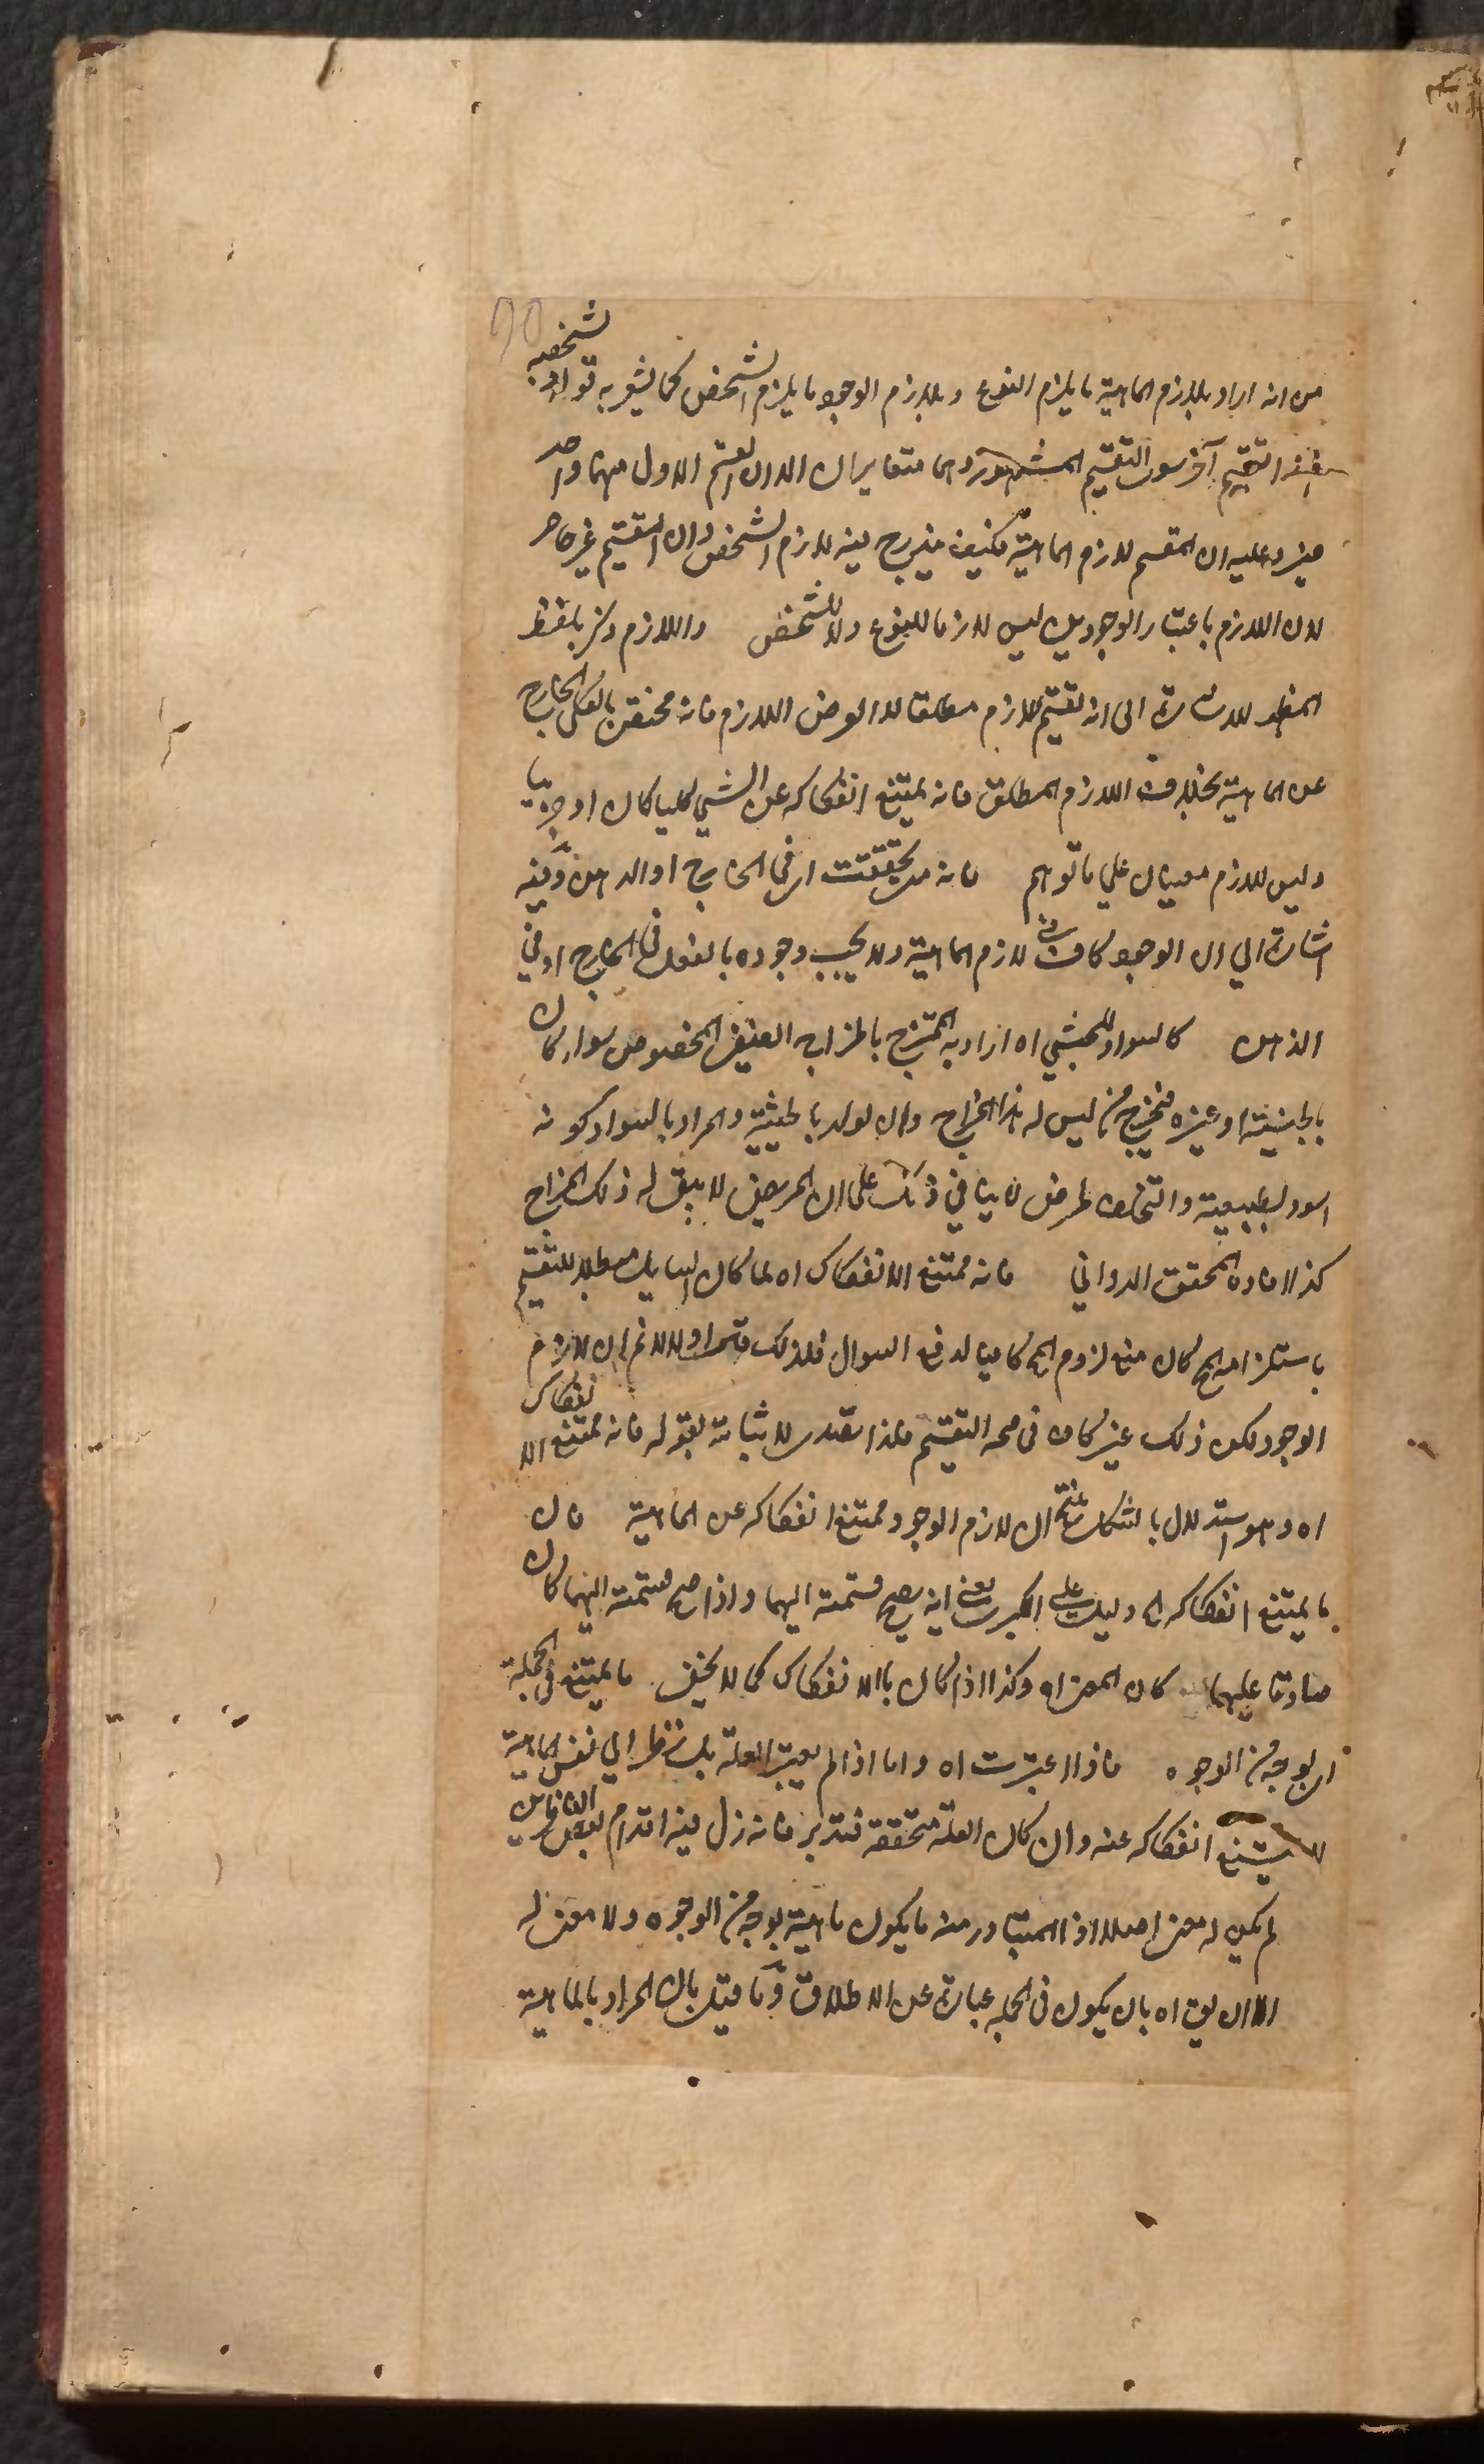 من انه اراد بلازم الماهية ما يلزم النوع وبلازم الوجود ما يلزم الشخص كما يشعر به قوله لشخصه
فهذا تقسيم آخر سوى التقسيم المشهور وهما متغايران الا ان القسم الاول منهما واحد
فيرد عليه ان المقسم لازم الماهية فكيف يندرج فيه لازم الشخص وان التقسيم غير حاصر
لان اللازم باعتبار الوجودين ليس لازما للنوع ولا للشخص واللازم ذكر بلفظ
المظهر للاشارة الى انه تقسيم للازم مطلقا لا العرض اللازم فانه مختص بالكلي الخارج
عن الماهية بخلاف اللازم المطلق فانه يمتنع انفكاكه عن الشيء كليا كان او جزئيا
وليس للازم معنيان على ما توهم فانه متى تحققت اى في الخارج او الذهن وفيه
اشارة الى ان الوجود كاف في لازم الماهية ولا يجب وجوده بالفعل في الخارج او في
الذهن كالسواد للحبشي اه اراد به الممتزج بالمزاج الصنفي المخصوص سواء كان
بالحبشة او غيره فيخرج من ليس له هذا المزاج وان تولد بالحبشة والمراد بالسواد كونه
اسود بطبيعته والتخلف لمرض لا ينافي ذلك على ان المريض لا يبقى له ذلك المزاج
كذا افاده المحقق الدواني فانه ممتنع الانفكاك اه لما كان السايل مبطلا للتقسيم
باستلزامه المح كان منع لزوم المح كافيا لدفع السوال فلذلك قال اولا لا نم ان لازم
الوجود لكن ذلك غير كاف في صحة التقسيم فلذا تصدى لاثباته بقوله فانه ممتنع الانفكاك
اه وهو استدلال بالشكل ان لازم الوجود ممتنع انفكاكه عن الماهية فان
ما يمتنع انفكاكه اه دليل على الكبرى يعني انه يصح قسمته اليهما واذا صح قسمته اليهما كان
صادقا عليهما كان المعنى اه وكذا اذا كان بالانفكاك كما لا يخفى ما يمتنع في الجملة
اى بوجه من الوجوه فاذا اعتبرت اه واما اذا لم يعتبر العلة بل نظر الى نفس الماهية
لا يمتنع انفكاكه عنه وان كان العلة متحققة فتدبر فانه زل فيه اقدام بعض الناظرين
لم يكن له معنى اصلا اذ المتبادر منه ما يكون ماهية بوجه من الوجوه ولا معنى له
الا ان يق اه بان يكون في الجملة عبارة عن الاطلاق وما قيل بان المراد بالماهية